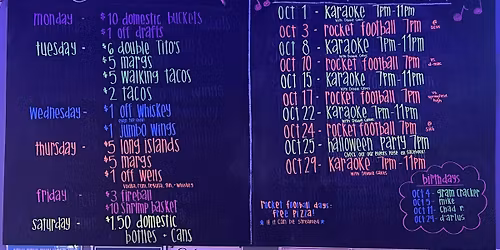 monday - $10 domestic buckets
$1 off drafts
tuesday - $6 double Tito's
$5 margs
$5 walking tacos
$2 tacos
Wednesday - $1 off whiskey
$1 jumbo wings
thursday - $5 long islands
$5 margs
$1 off wells
vodka, rum, tequila, gin, whiskey
friday - $3 fireball
$10 Shrimp basket
saturday - $1.50 domestic
bottles - cans
Oct 1 - Karaoke 7pm-11pm
Oct 3 - rocket football 7pm
Oct 8 - Karaoke 7pm-11pm
Oct 10 - rocket football 7pm
Oct 15 - Karaoke 7pm-11pm
Oct 17 - rocket football 7pm
Oct 22 - Karaoke 7pm-11pm
Oct 24 - rocket football 7pm
Oct 25 - halloween party 7pm
Oct 29 - Karaoke 7pm-11pm
rocket football days:
free pizza!
* if it can be streamed *
birthdays
Oct 4 - gram cracker
Oct 5 - mike
Oct 11 - chad r
Oct 24 - darius